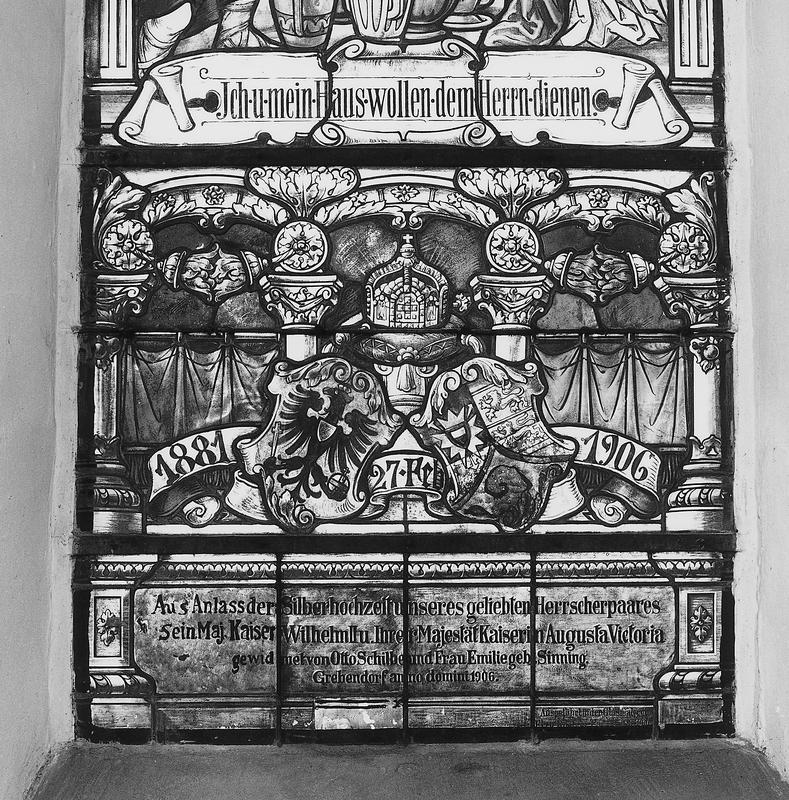 Jch·u·mein·Haus·wollen·dem Herrn·dienen.
1881 27·Feb 1906
Aus Anlass der Silberhochzeit unseres geliebten Herrscherpaares
Sein Maj. Kaiser Wilhelm II u. Ihrer Majestät Kaiserin Augusta Victoria
gewidmet von Otto Schilbe und Frau Emilie geb. Sinning.
Grebendorf anno domini 1906.